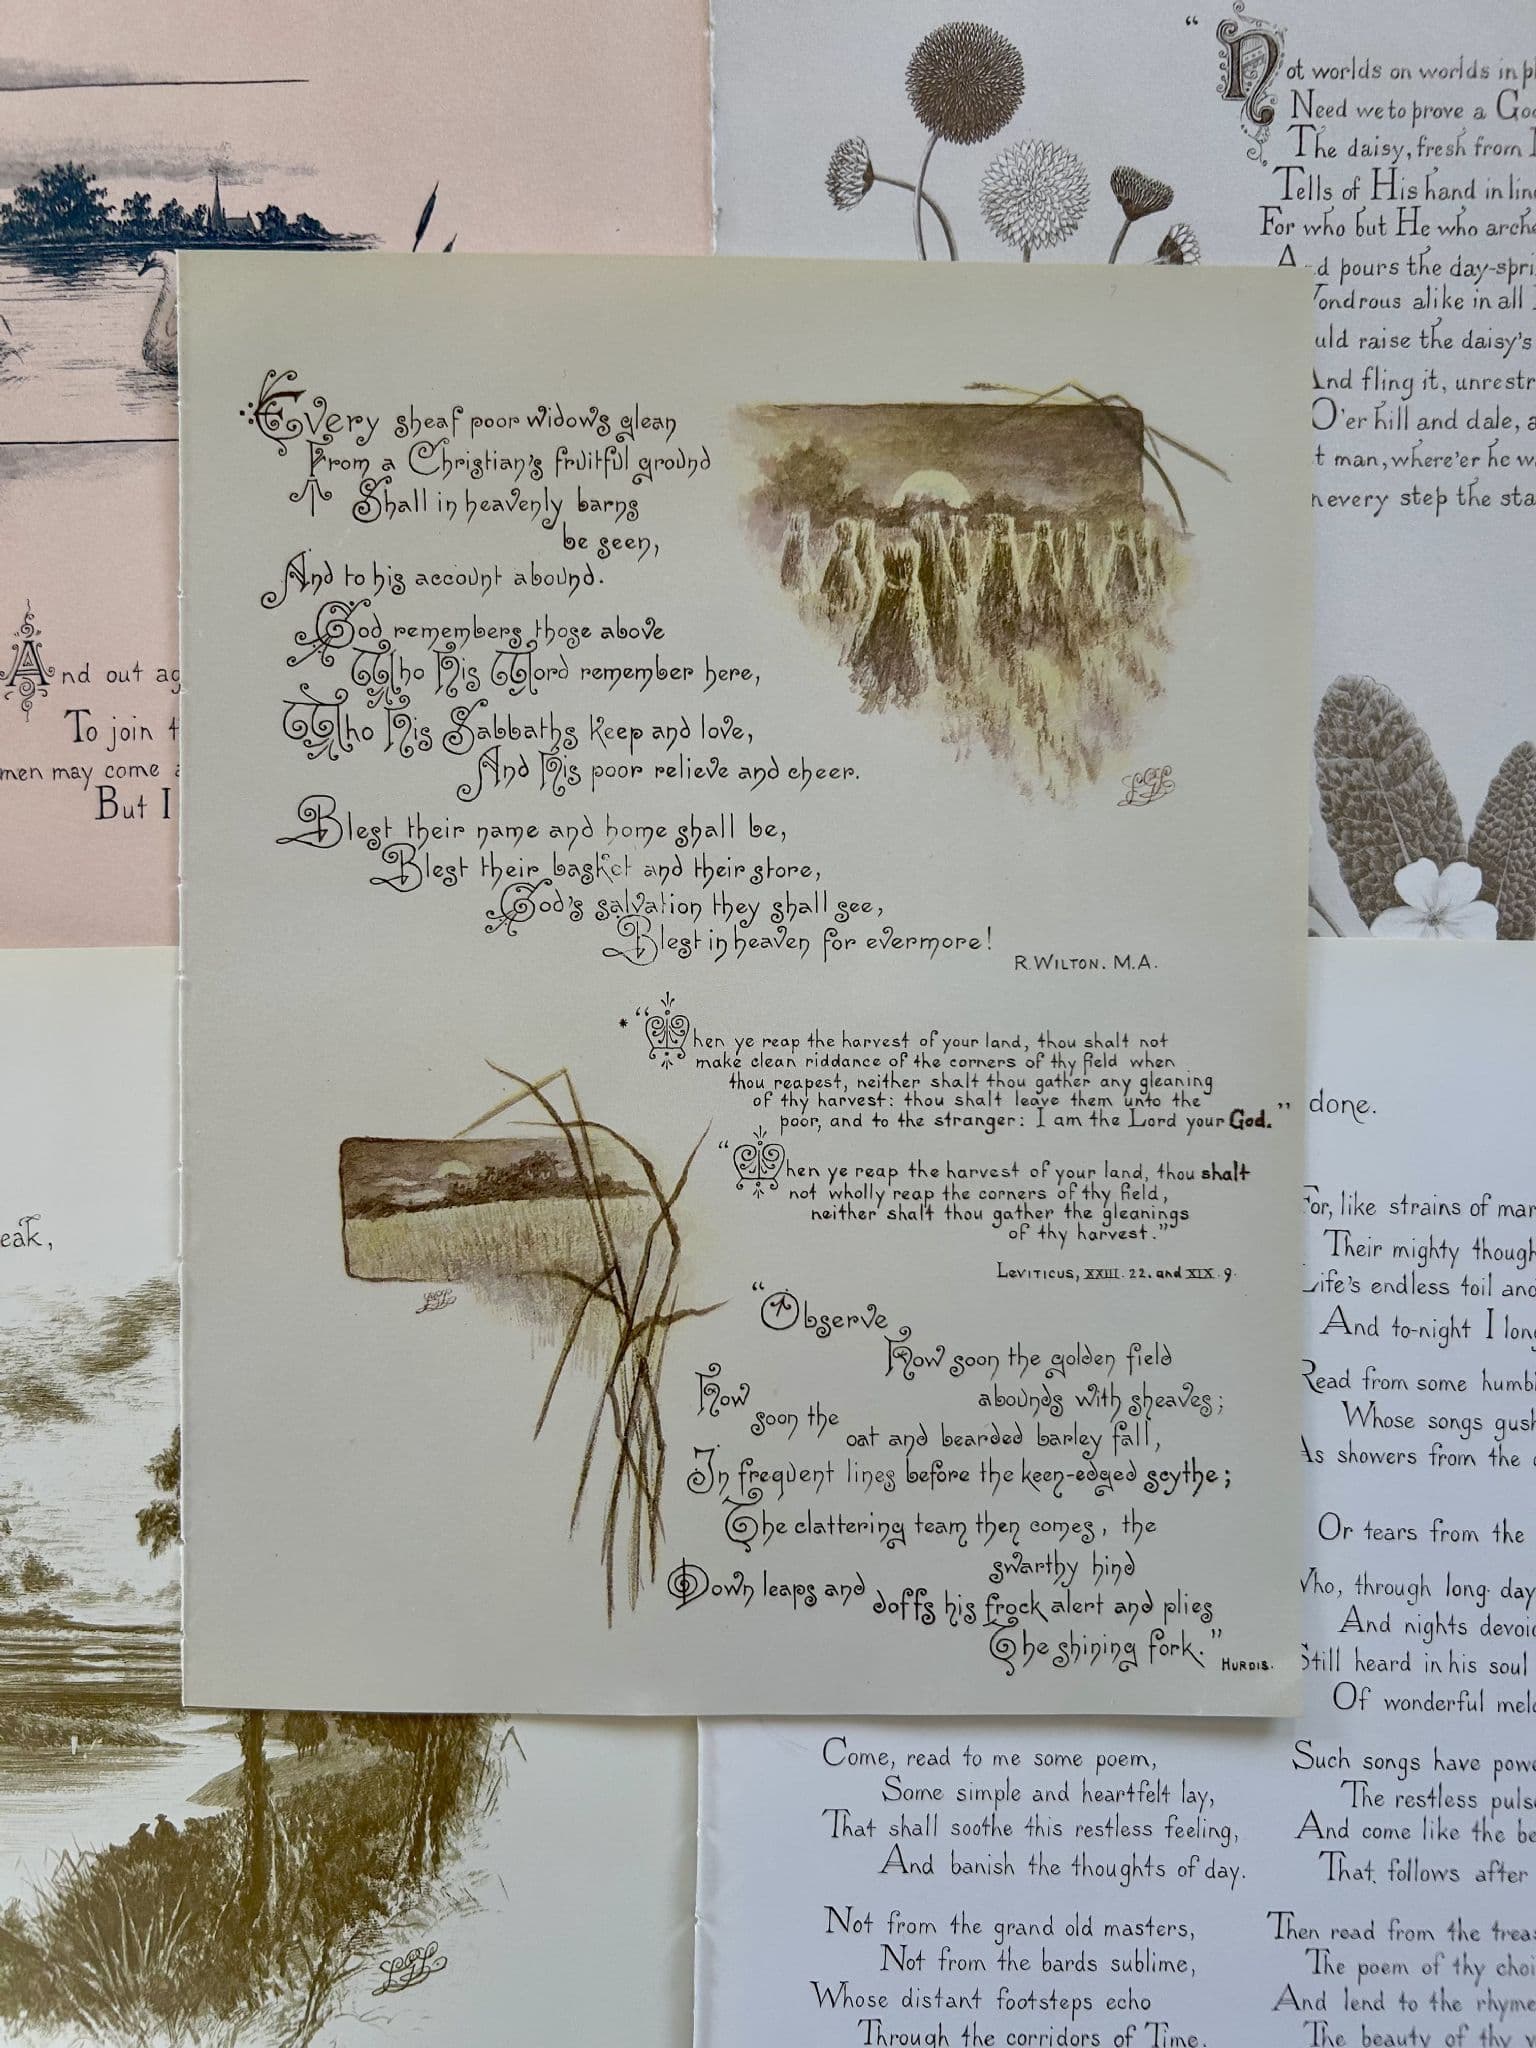 Every sheaf poor widows glean
From a Christian's fruitful ground
Shall in heavenly barns
be seen,
And to his account abound.
God remembers those above
Who His Word remember here,
Who His Sabbaths keep and love,
And His poor relieve and cheer.
Blest their name and home shall be,
Blest their basket and their store,
God's salvation they shall see,
Blest in heaven for evermore!
R. WILTON. M.A.
* "When ye reap the harvest of your land, thou shalt not
make clean riddance of the corners of thy field when
thou reapest, neither shalt thou gather any gleaning
of thy harvest: thou shalt leave them unto the
poor, and to the stranger: I am the Lord your God."
"When ye reap the harvest of your land, thou shalt
not wholly reap the corners of thy field,
neither shalt thou gather the gleanings
of thy harvest."
LEVITICUS, XXIII. 22. and XIX. 9.
"Observe
How soon the golden field
abounds with sheaves;
How soon the oat and bearded barley fall,
In frequent lines before the keen-edged scythe;
The clattering team then comes, the
swarthy hind
Down leaps and doffs his frock alert and plies
The shining fork."
HURDIS.
"Not worlds on worlds in
Need we to prove a
The daisy, fresh from
Tells of His hand in
For who but He who
And pours the
Wondrous alike in all
raise the daisy's
And fling it,
O'er hill and dale,
man, where'er he
every step the
And out
To join
men may come
But I
done.
For, like strains of
Their mighty
Life's endless toil and
And to-night I
Read from some
Whose songs
As showers from the
Or tears from the
Who, through long
And nights
Still heard in his soul
Of wonderful
Come, read to me some poem,
Some simple and heartfelt lay,
That shall soothe this restless feeling,
And banish the thoughts of day.
Not from the grand old masters,
Not from the bards sublime,
Whose distant footsteps echo
Through the corridors of Time.
Such songs have
The restless
And come like the
That follows after
Then read from the
The poem of thy
And lend to the
The beauty of thy